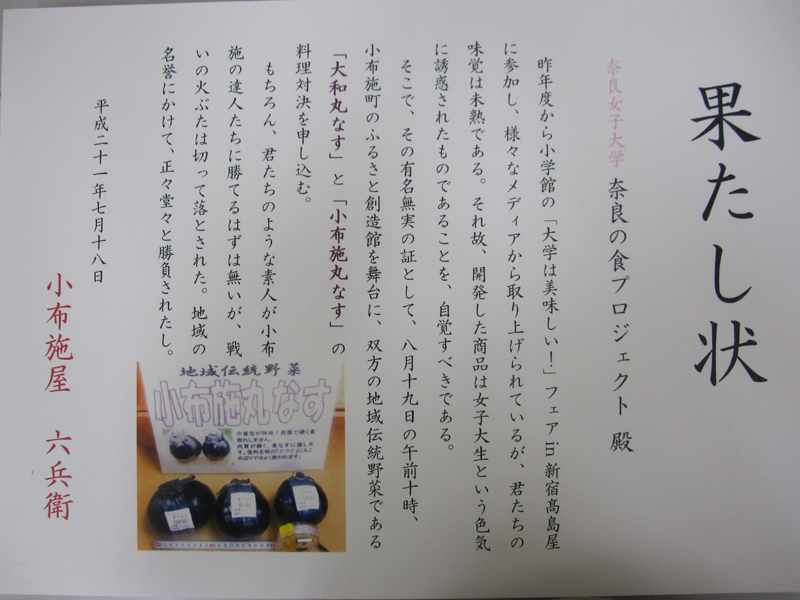 果たし状
奈良女子大学 奈良の食プロジェクト 殿
昨年度から小学館の「大学は美味しい！」フェア in 新宿髙島屋
に参加し、様々なメディアから取り上げられているが、君たちの
味覚は未熟である。それ故、開発した商品は女子大生という色気
に誘惑されたものであることを、自覚すべきである。
そこで、その有名無実の証として、八月十九日の午前十時、
小布施町のふるさと創造館を舞台に、双方の地域伝統野菜である
「大和丸なす」と「小布施丸なす」の
料理対決を申し込む。
もちろん、君たちのような素人が小布
施の達人たちに勝てるはずは無いが、戦
いの火ぶたは切って落とされた。地域の
名誉にかけて、正々堂々と勝負されたし。
平成二十一年七月十八日
小布施屋 六兵衛
地域伝統野菜
小布施丸なす